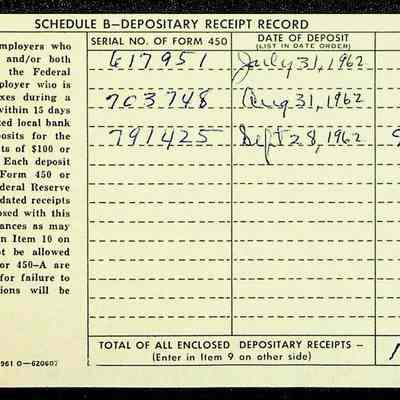 SCHEDULE B—DEPOSITARY RECEIPT RECORD
mployers who
and/or both
the Federal
ployer who is
xes during a
within 15 days
ted local bank
posits for the
ts of $100 or
Each deposit
Form 450 or
deral Reserve
dated receipts
osed with this
ances as may
n Item 10 on
t be allowed
or 450-A are
for failure to
ions will be
961 O—620607
SERIAL NO. OF FORM 450
DATE OF DEPOSIT
(LIST IN DATE ORDER)
617951 July 31, 1962
703748 Aug 31, 1962
791425 Sept 28, 1962
TOTAL OF ALL ENCLOSED DEPOSITARY RECEIPTS -
(Enter in Item 9 on other side)
1